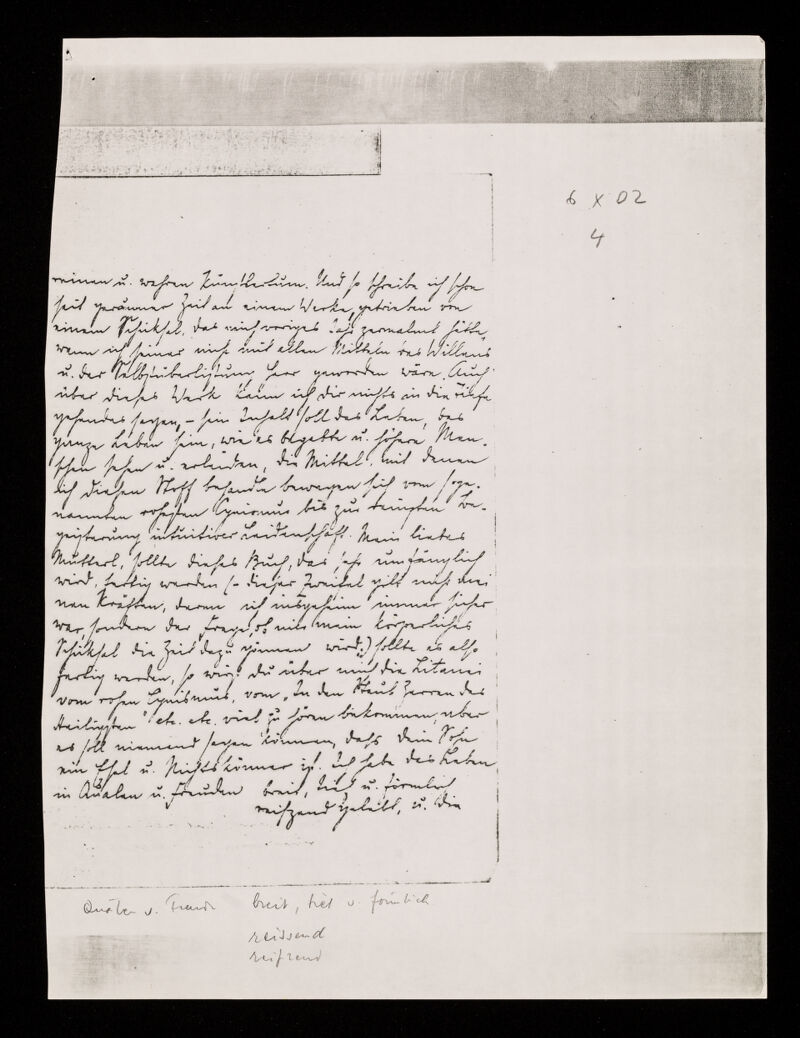 6 X 02
4
reinen u. wahren Künstlertum. Und so schreibe ich schon
seit geraumer Zeit an einem Werke, getrieben von
einem Schicksal, das mich voriges Jahr zermalmt hätte,
wenn ich seiner nicht mit allen Mitteln des Willens
u. der Selbstüberlistung Herr geworden wäre. Auch
über dieses Werk kann ich dir nichts in die Tiefe
gehendes sagen, – sein Inhalt soll das Leben, das
ganze Leben sein, wie es begabte u. höhere Men-
schen sehen u. erleiden, die Mittel, mit denen
ich diesen Stoff behandle bewegen sich vom soge-
nannten rohesten Cynismus bis zur Be-
geisterung intuitiver Leidenschaft. Mein liebes
Mutterl, sollte dieses Buch, das sehr umfänglich
wird, fertig werden (– dieser Zweifel gilt nicht mei
nen Kräften, deren ich insgeheim immer sicher
war, sondern der Frage, ob mir mein körperliches
Schicksal die Zeit dazu gönnen wird;) sollte es also
fertig werden, so wirst Du über mich die Litanei
vom rohen Cynismus, vom „In den Staub Zerren des
Heiligsten" etc. etc. viel zu hören bekommen, aber
es soll niemand sagen können, dass dein Sohn
ein Esel u. Nichtskönner ist. Ich habe das Leben
in Qualen u. Freuden breit, tief u. förmlich
reißend gelebt, u. die
Qualen u. Freuden breit, tief u. förmlich
reissend
reifzend